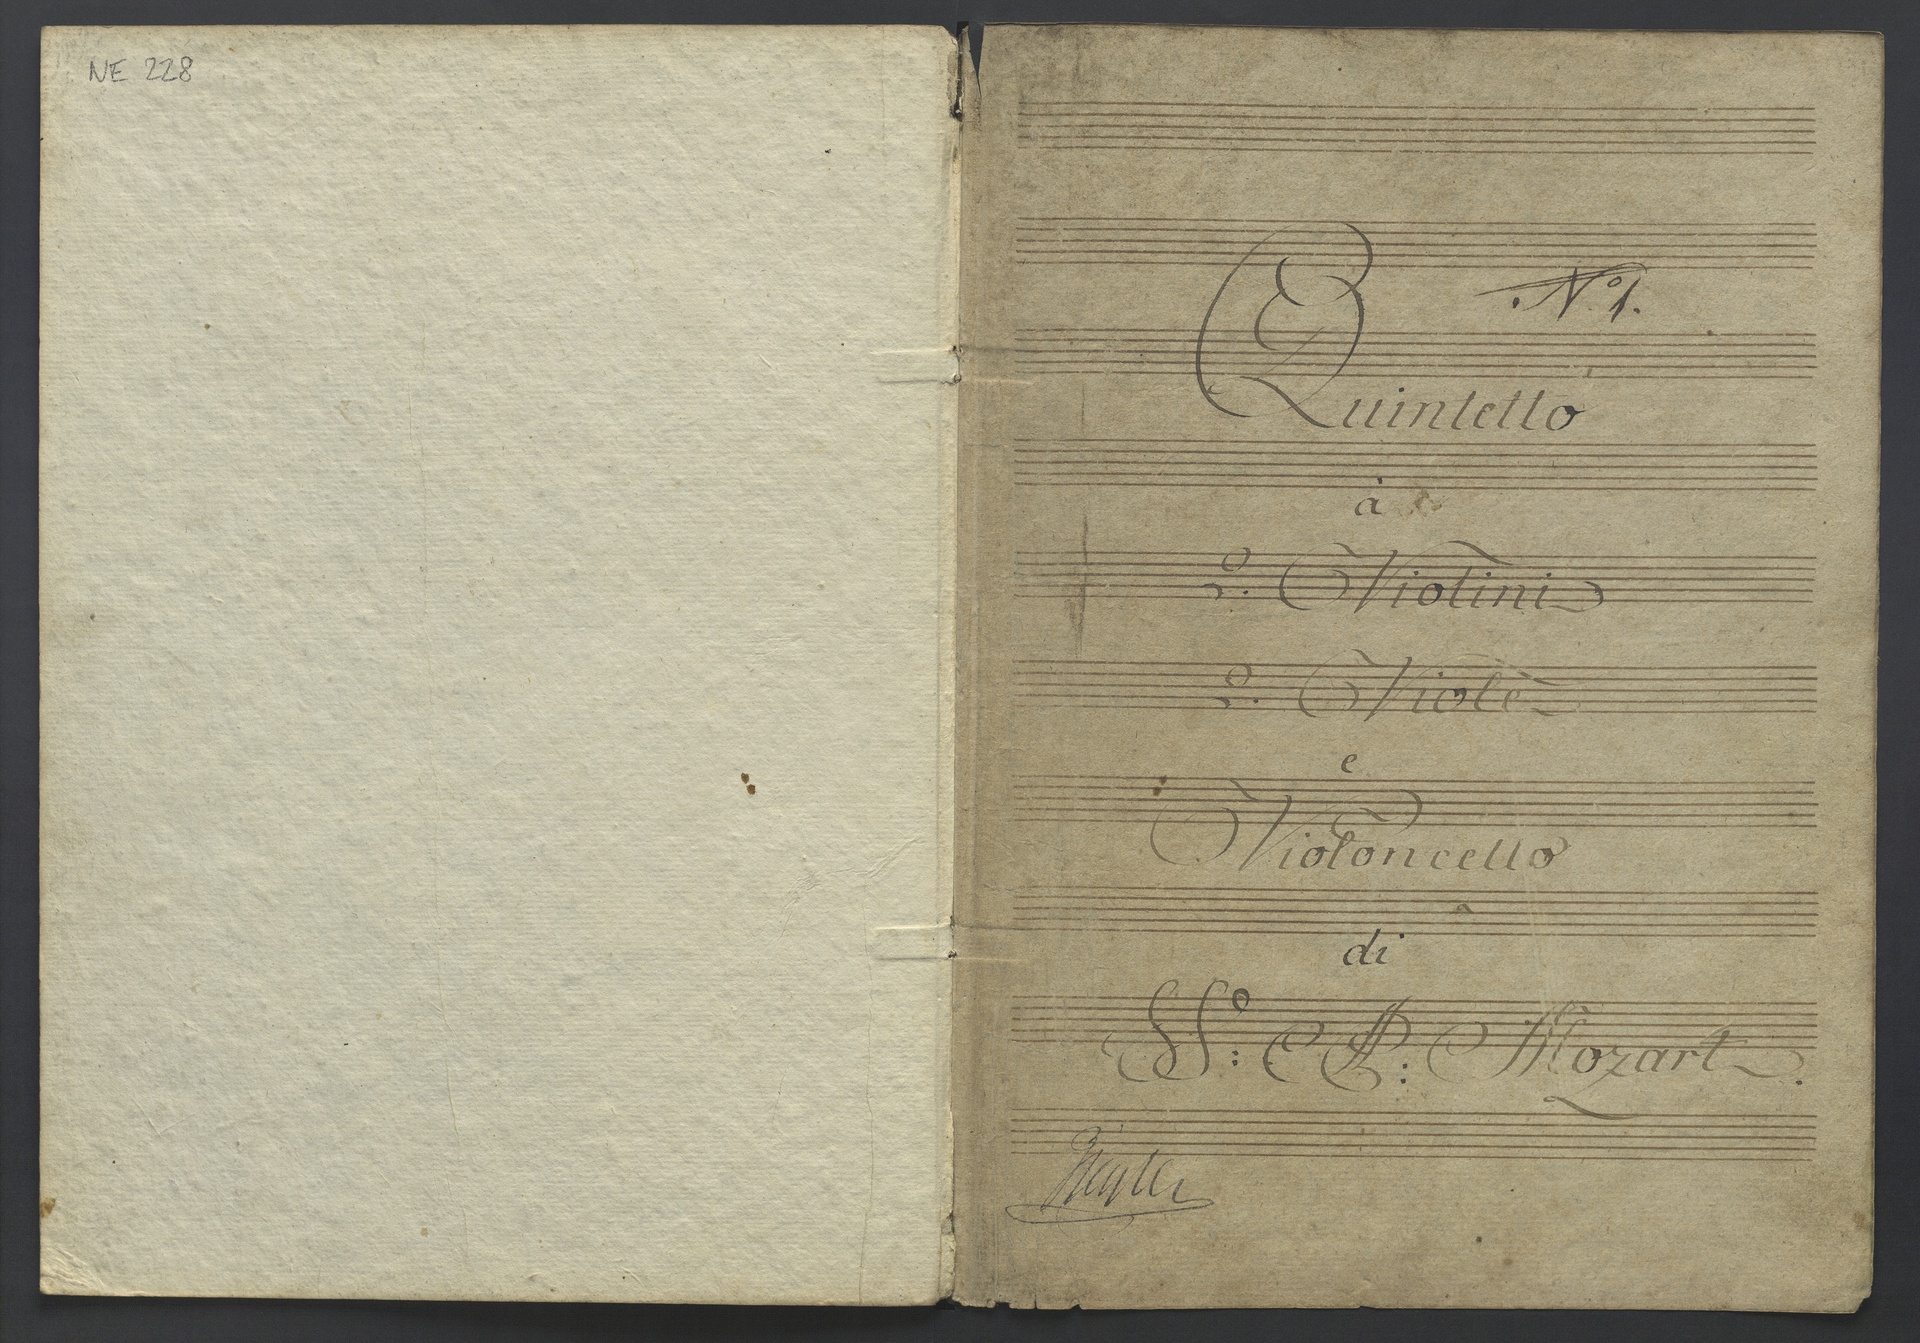 NE 228
No. 1.
Quintetto
à
2. Violini
2. Viole
e
Violoncello
di
Mozart.